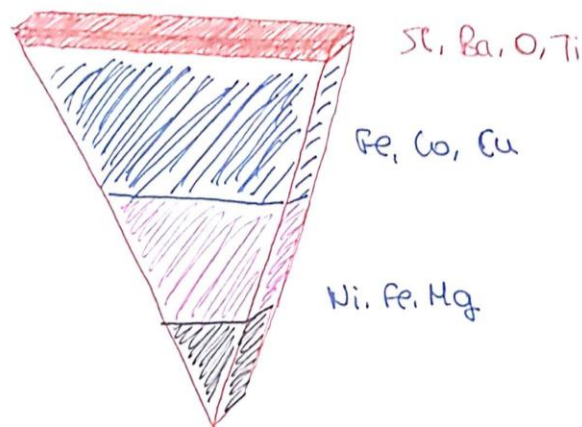 Sc, Ba, O, Ti
Fe, Co, Cu
Ni. Fe. Mg